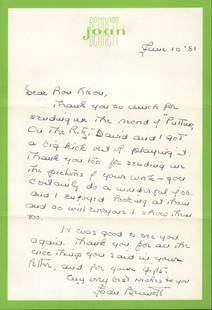 BENNETT
joan
BENNETT
June 10 '81
Dear Ron
Thank you so much for
sending us the record of "Putting
On the Ritz," David and I got
a big kick out of playing it.
Thank you too for sending us
the pictures of your work - you
certainly do a wonderful job
and I enjoyed looking at them
and so will everyone I show them
too.
It was good to see you
again. Thank you for all the
nice things you said in your
letter, and for your gifts.
My very best wishes to you
Joan Bennett